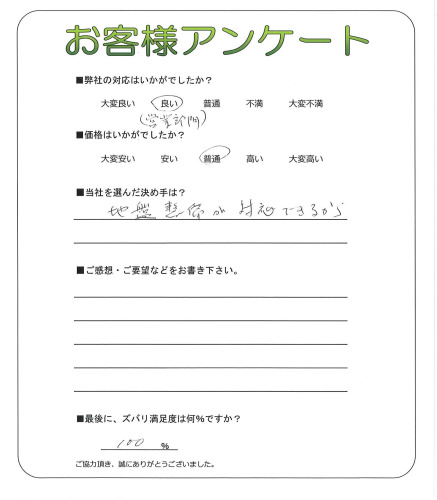 お客様アンケート
■弊社の対応はいかがでしたか？
大変良い 良い 普通 不満 大変不満
(営業部門)
■価格はいかがでしたか？
大変安い 安い 普通 高い 大変高い
■当社を選んだ決め手は？
地盤 が 対応できるから
■ご感想・ご要望などをお書き下さい。
■最後に、ズバリ満足度は何%ですか？
100 %
ご協力頂き、誠にありがとうございました。